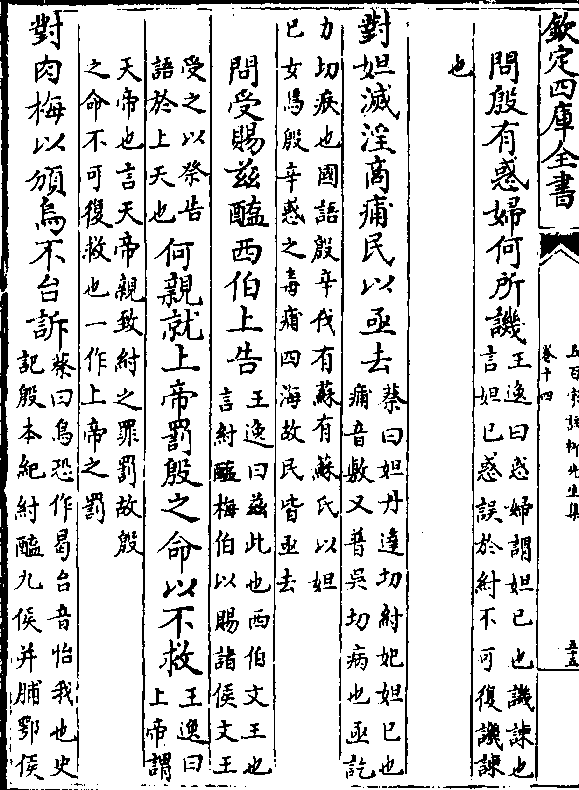 欽定四庫全書
五百家註柳先生集
卷十四
五五
問殷有惑婦何所譏
王逸曰惑婦謂妲已也譏諫也
言妲已惑誤於紂不可復譏諫
也
對妲滅淫商痡民以亟去
蔡曰妲丹達切紂妃妲已也
痡音敷又普吳切病也亟訖
力切疾也國語殷辛伐有蘇有蘇氏以妲
已女焉殷辛惑之毒痡四海故民皆亟去
問受賜茲醢西伯上告
王逸曰茲此也西伯文王也
言紂醢梅伯以賜諸侯文王
受之以祭告
語於上天也
何親就上帝罰殷之命以不救
王逸曰
上帝謂
天帝也言天帝親致紂之罪罰故殷
之命不可復救也一作上帝之罰
對肉梅以頒烏不台訴
蔡曰烏恐作曷台音怡我也史
記殷本紀紂醢九侯并脯鄂侯